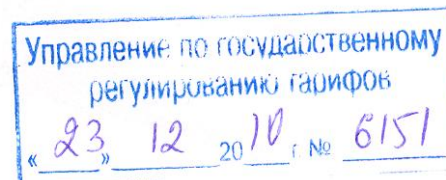 Управление по государственному
регулированию тарифов
« 23 » 12 2010 г. № 6151